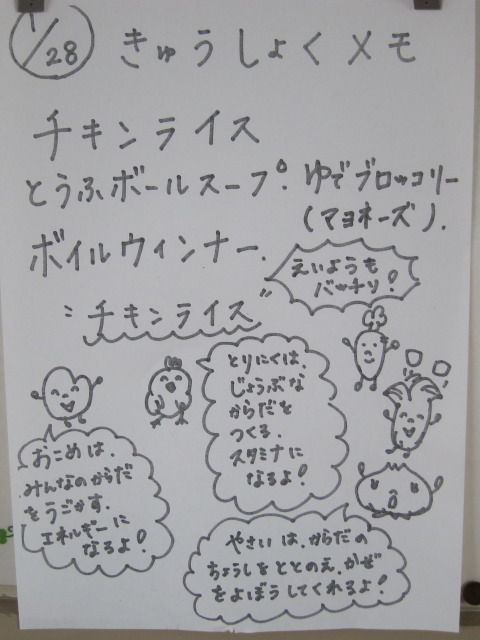 1/28 きゅうしょくメモ
チキンライス
とうふボールスープ. ゆでブロッコリー
(マヨネーズ).
ボイルウィンナー.
えいようも
バッチリ!
〝チキンライス〟
とりにくは、
じょうぶな
からだを
つくる.
スタミナに
なるよ!
おこめは、
みんなのからだ
をうごかす.
エネルギーに
なるよ!
やさいは、からだの
ちょうしをととのえ、かぜ
をよぼうしてくれるよ!